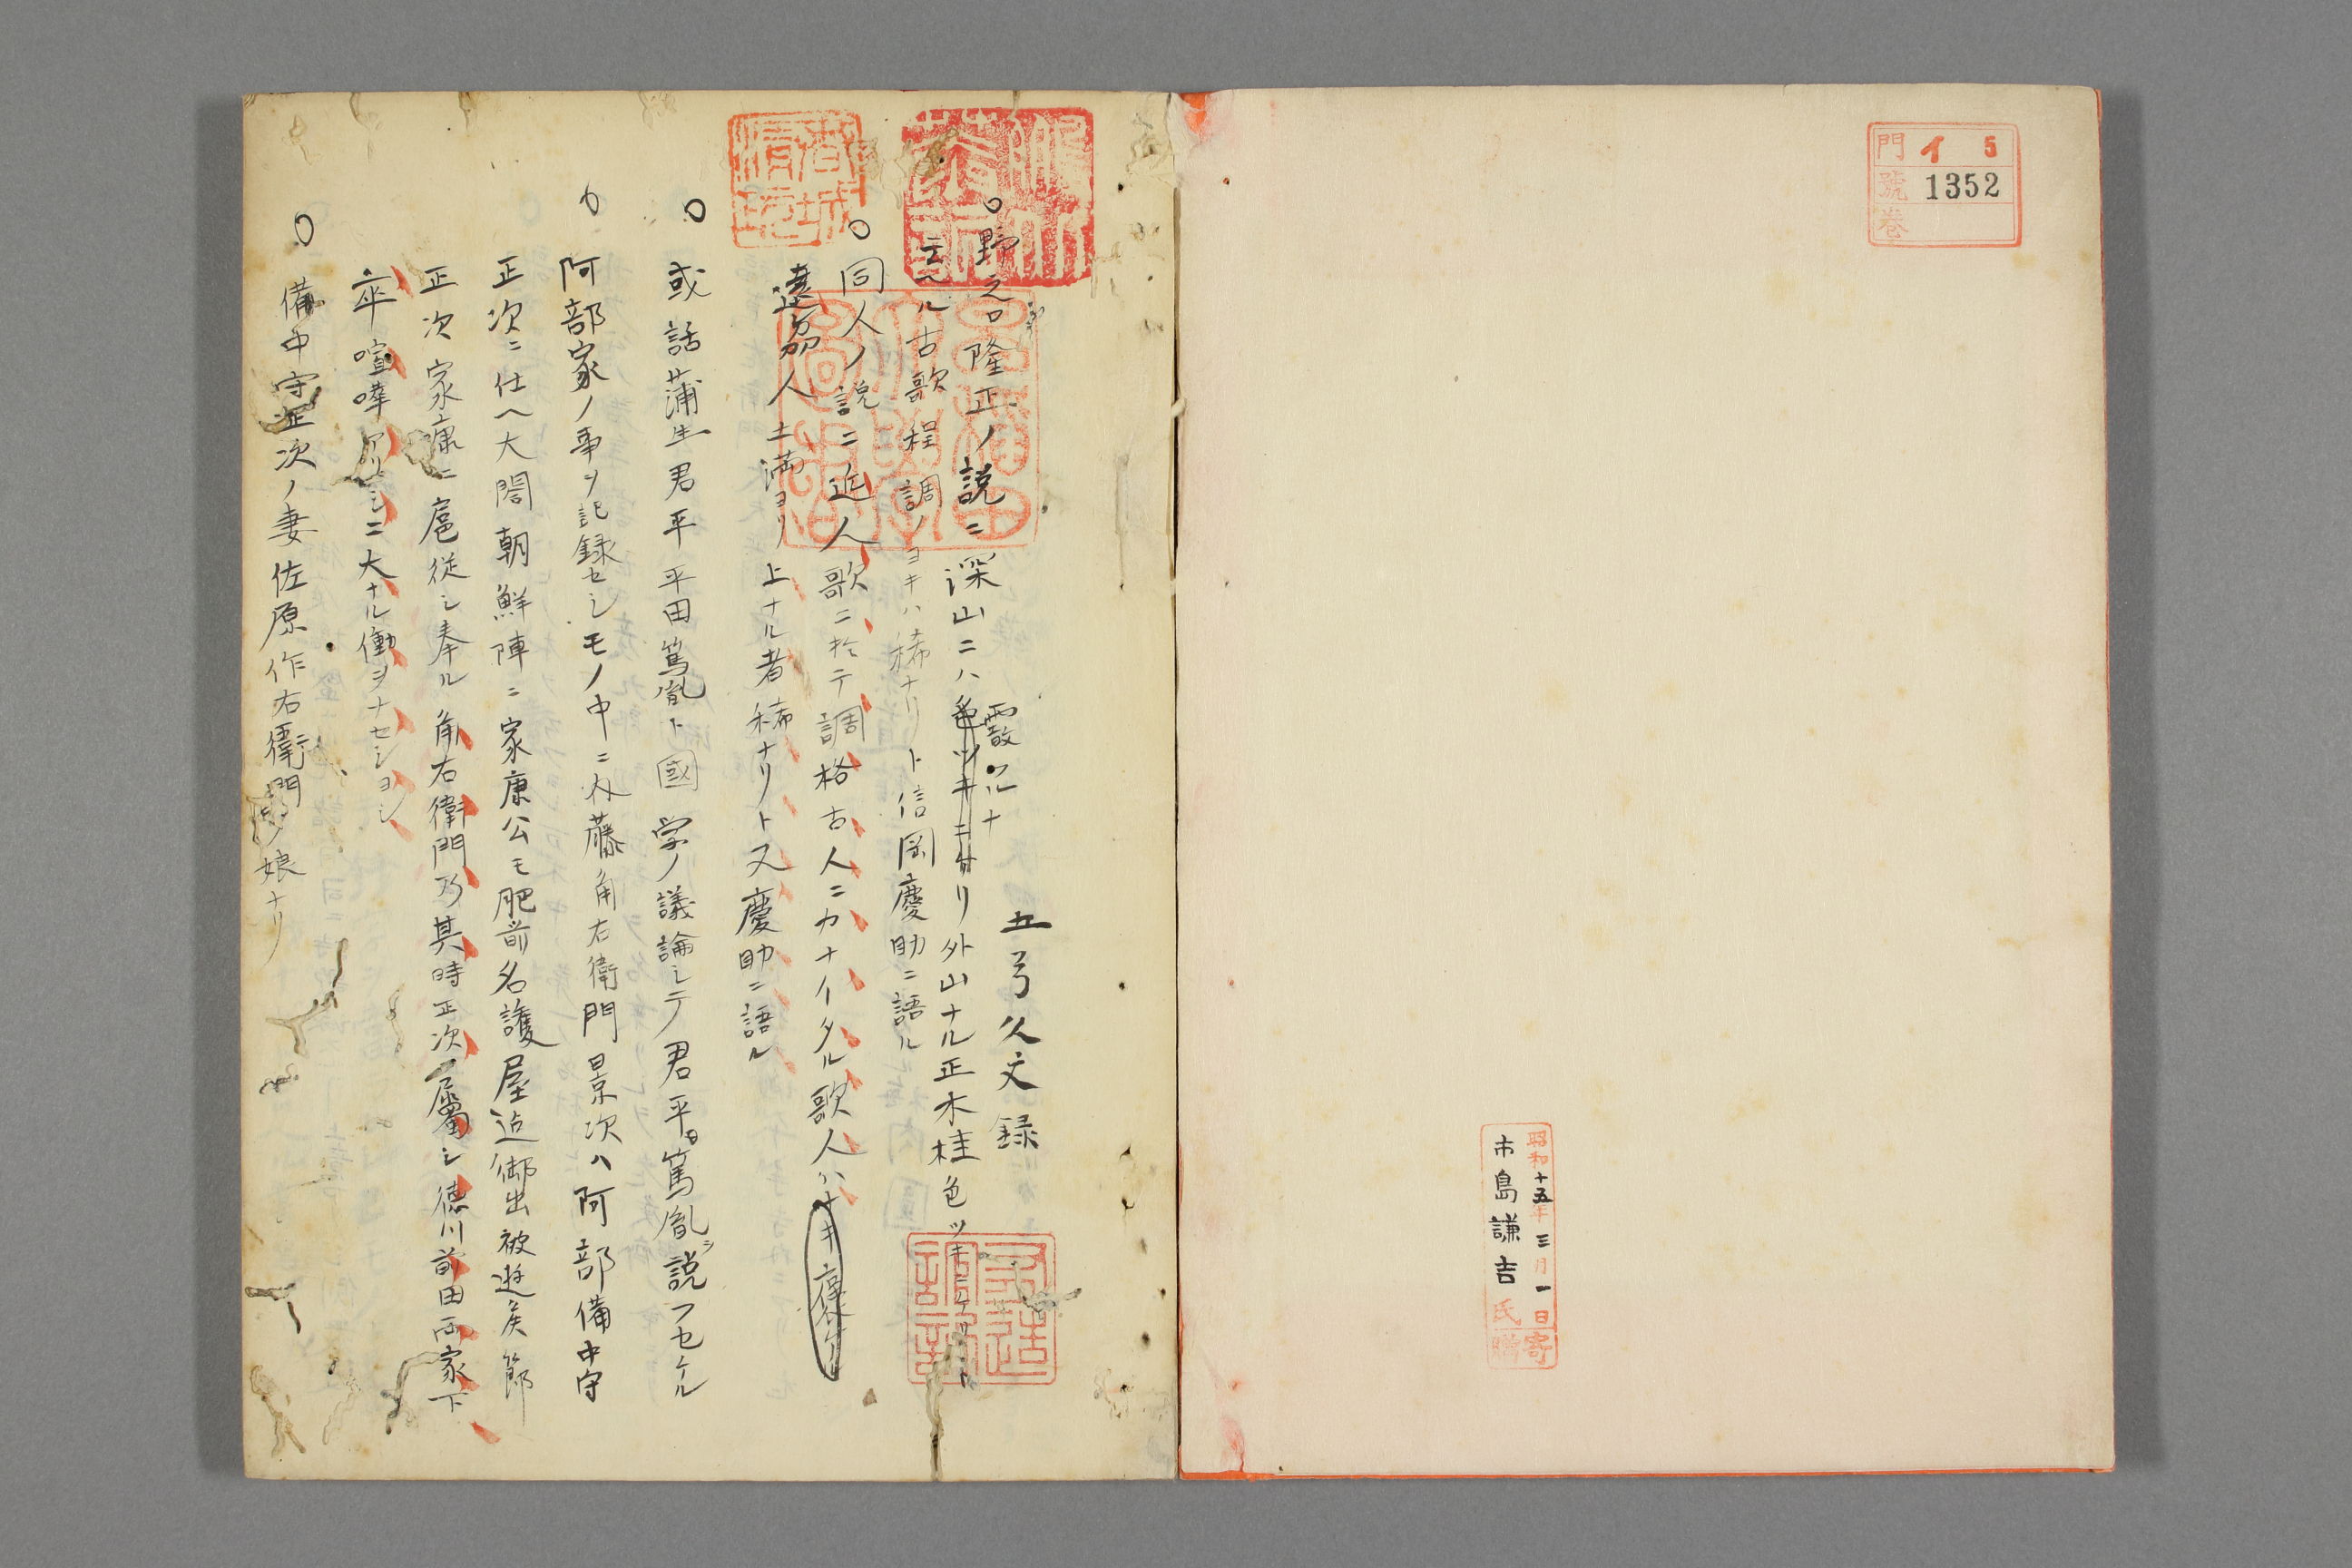 門 イ 5
號 1352
卷
昭和十五年三月一日寄
市島謙吉氏贈
五弓久文録
○野之口隆正ノ説ニ深山ニハ霰フルナリ外山ナル正木桂色ツキニケリト
云ル古歌程調ノヨキハ稀ナリト信岡慶助ニ語ル
○同人ノ説ニ近人歌ニ於テ調格古人ニカナイタル歌人ハナキ
達磨人土満ヨリ上ナル者稀ナリト又慶助ニ語ル
○或話蒲生君平平田篤胤ト國学ノ議論シテ君平曰篤胤説フセケル
○阿部家ノ事ヲ記録セシモノ中ニ内藤角右衛門景次ハ阿部備中守
正次ニ仕ヘ大閤朝鮮陣ニ家康公モ肥前名護屋迠御出被遊矣節
正次家康ニ扈従シ奉ル角右衛門乃其時正次ノ屬シ徳川前田両家下
卒喧嘩アリシニ大ナル働ヲナセシヨシ
○備中守正次ノ妻佐原作右衛門ノ娘ナリ